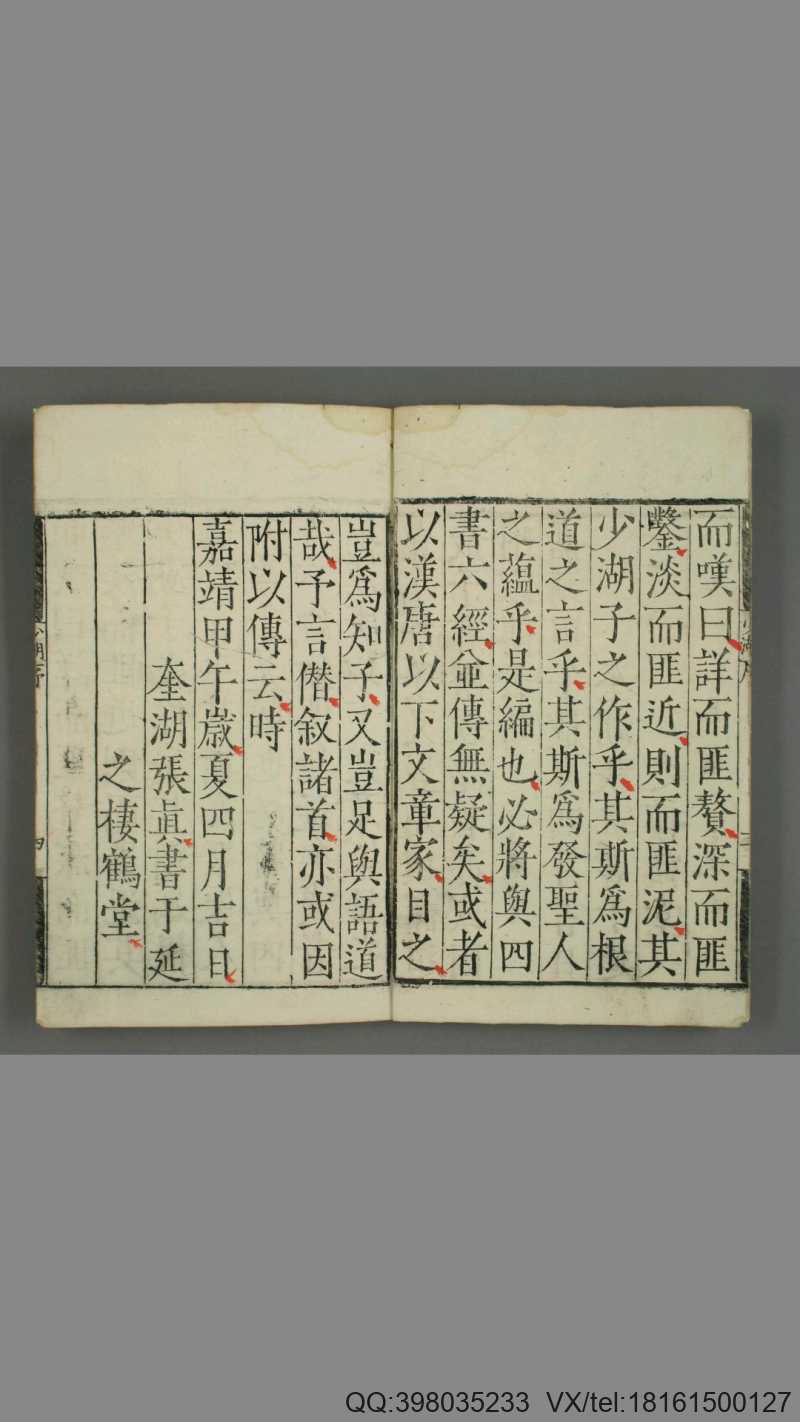 而嘆曰詳而匪贅深而匪
鑿淡而匪近則而匪泥其
少湖子之作乎其斯爲根
道之言乎其斯爲發聖人
之蘊乎是編也必將與四
書六經並傳無疑矣或者
以漢唐以下文章家目之
豈爲知子又豈足與語道
哉予言僭叙諸首亦或因
附以傳云時
嘉靖甲午歲夏四月吉日
奎湖張眞書于延
之棲鶴堂
四
QQ:398035233 VX/tel:18161500127